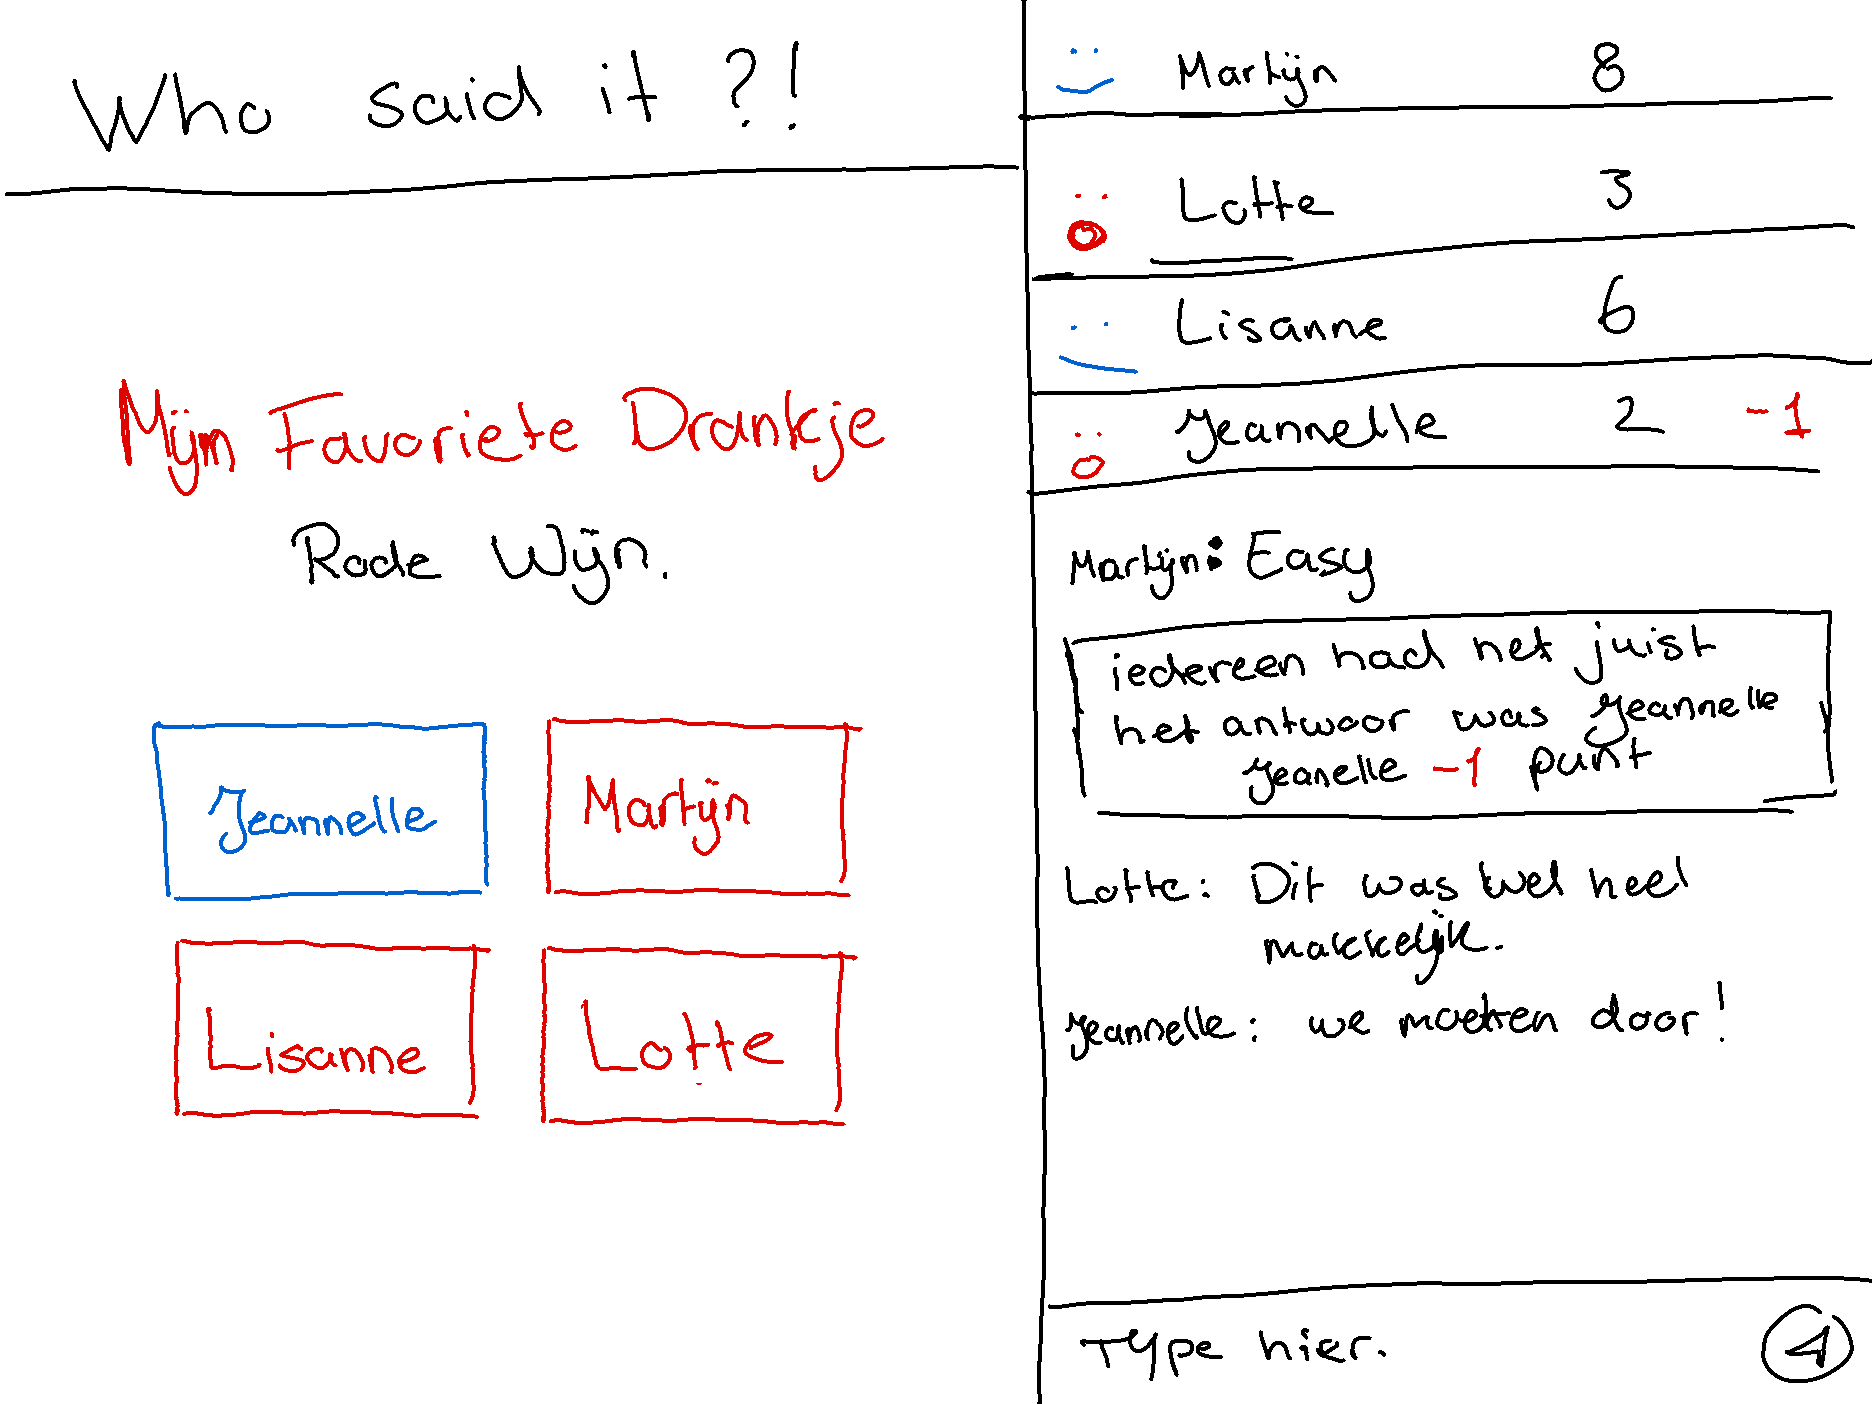 Who said it ?!
Mijn Favoriete Drankje
Rode Wijn.
Jeannelle
Martijn
Lisanne
Lotte
Martijn 8
Lotte 3
Lisanne 6
Jeannelle 2 -1
Martijn: Easy
iedereen had het juist
het antwoor was Jeannelle
Jeanelle -1 punt
Lotte: Dit was wel heel
makkelijk.
Jeannelle: we moeten door!
Type hier.